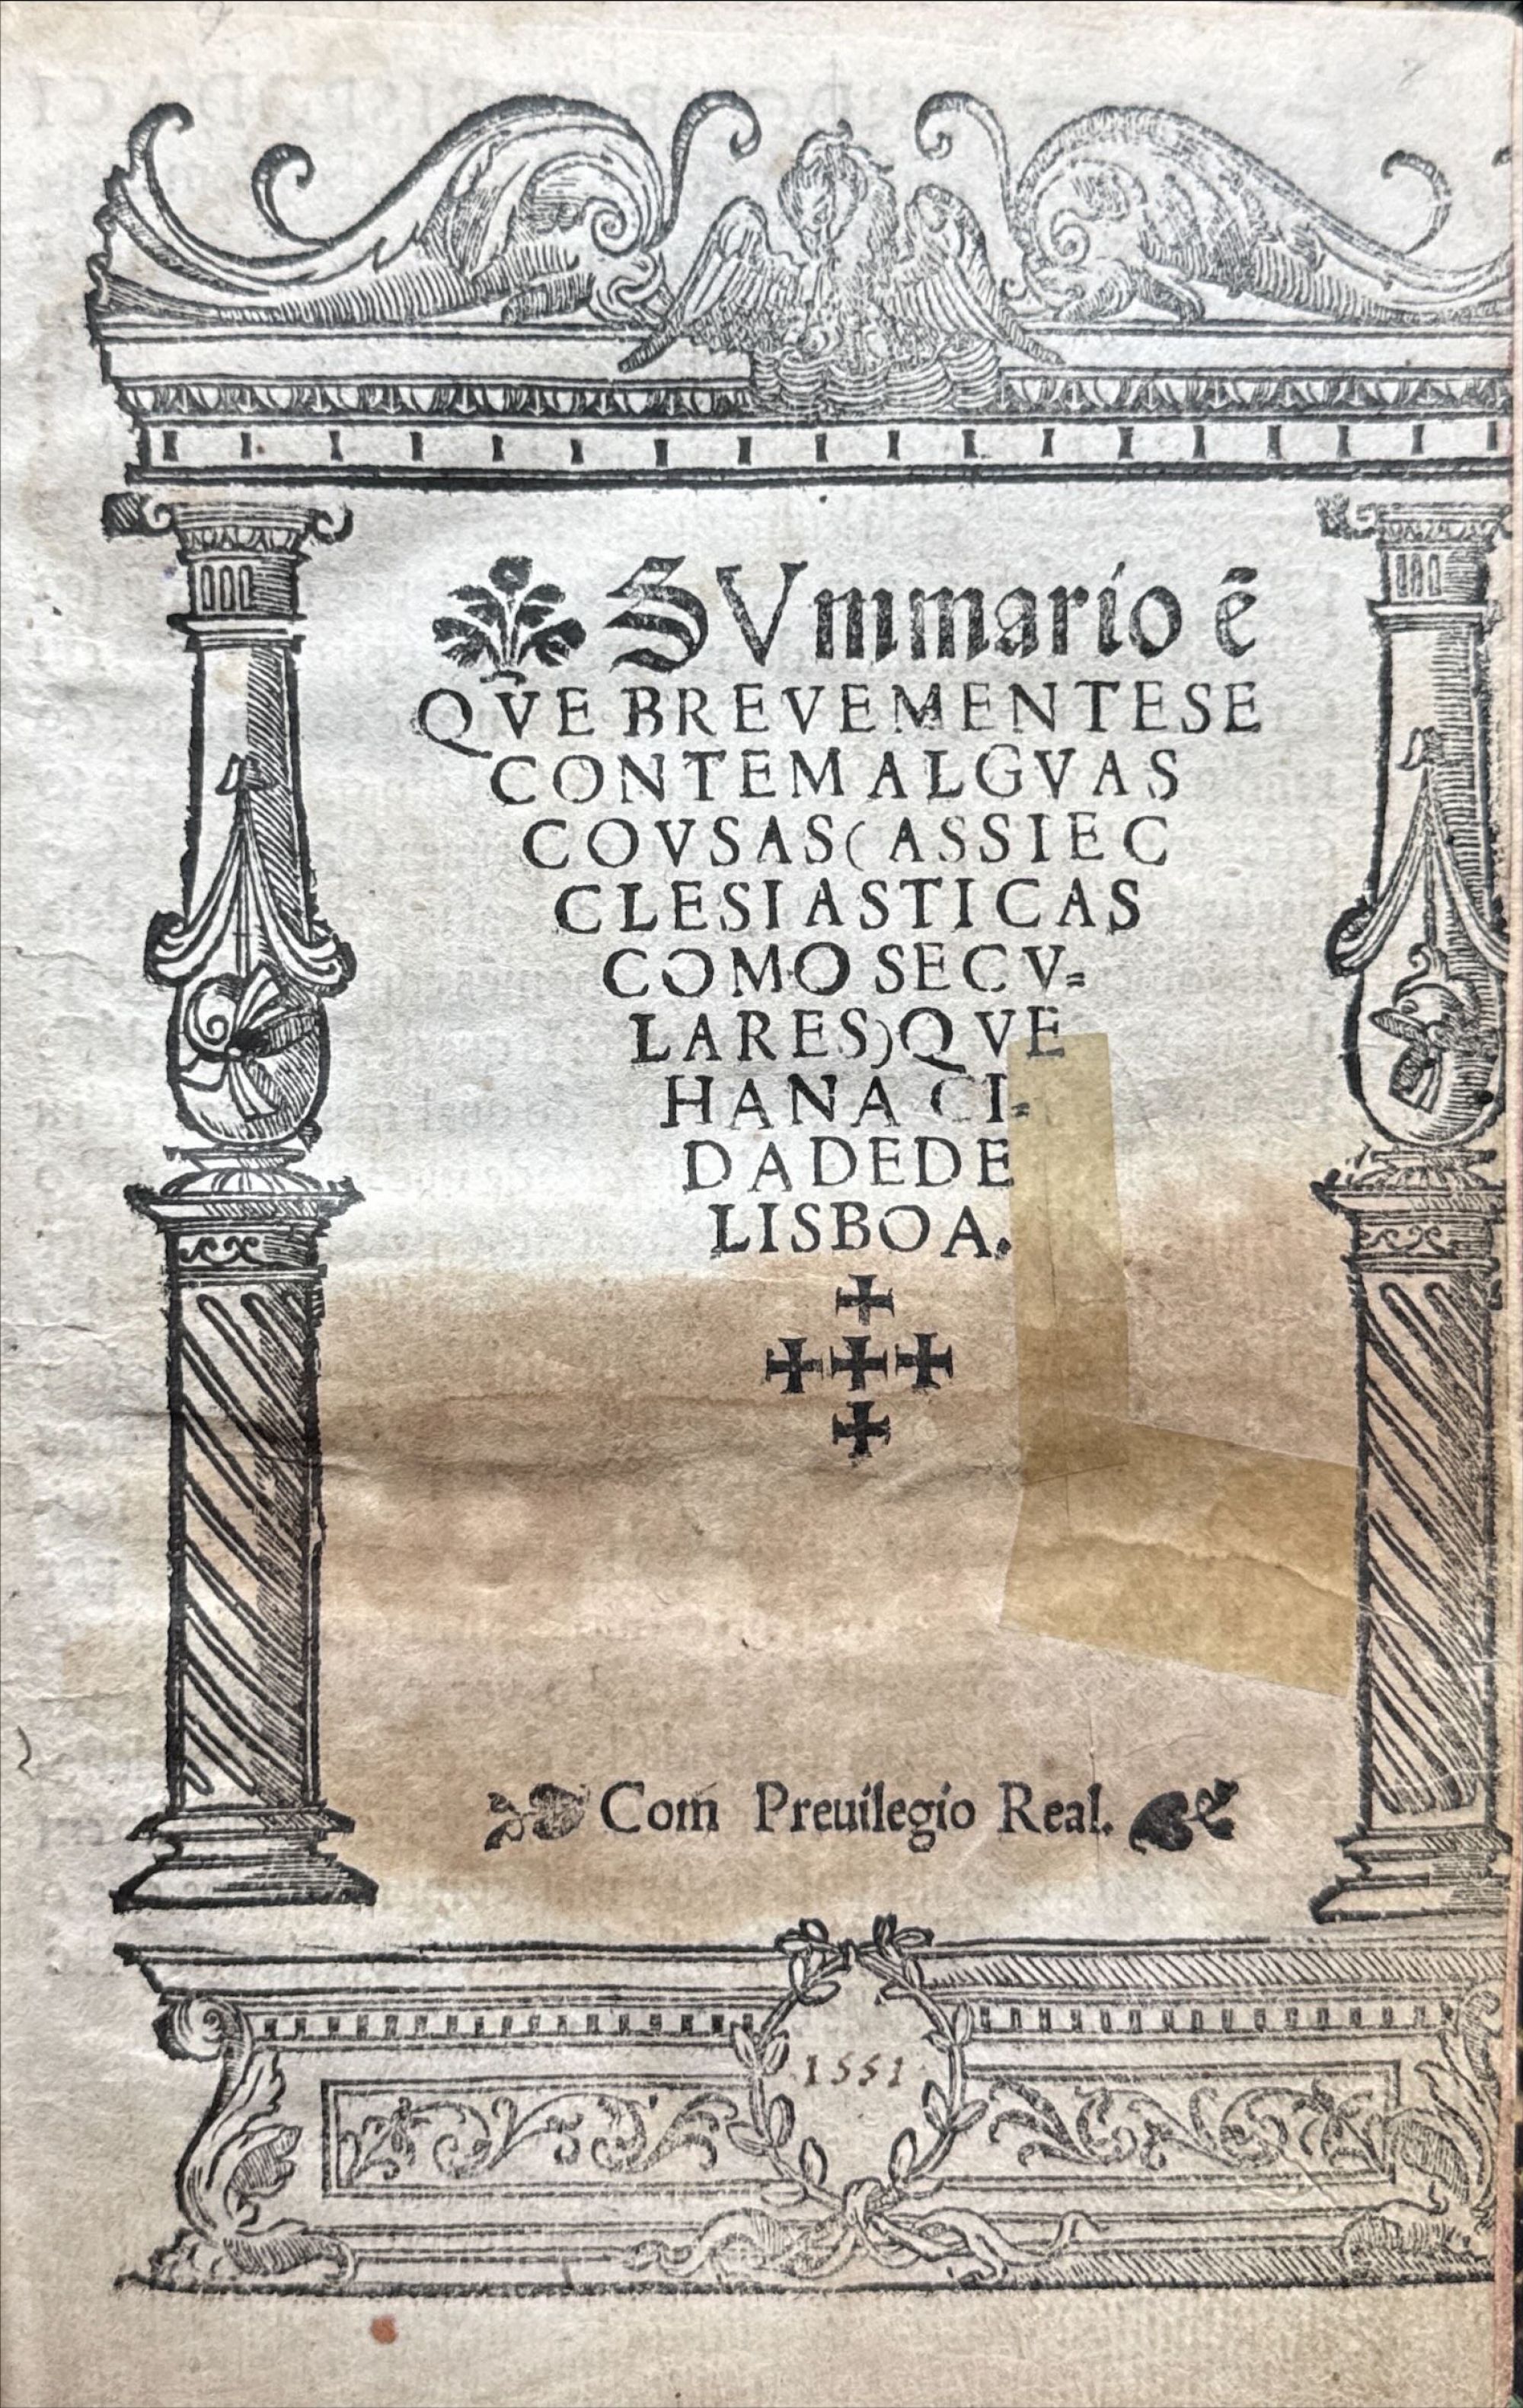 SVmmario ẽ
QVE BREVEMENTESE
CONTEM ALGVAS
COVSAS(ASSIEC
CLESIASTICAS
COMO SECV=
LARES)QVE
HANA CI=
DADEDE
LISBOA.
Com Preuilegio Real.
1551